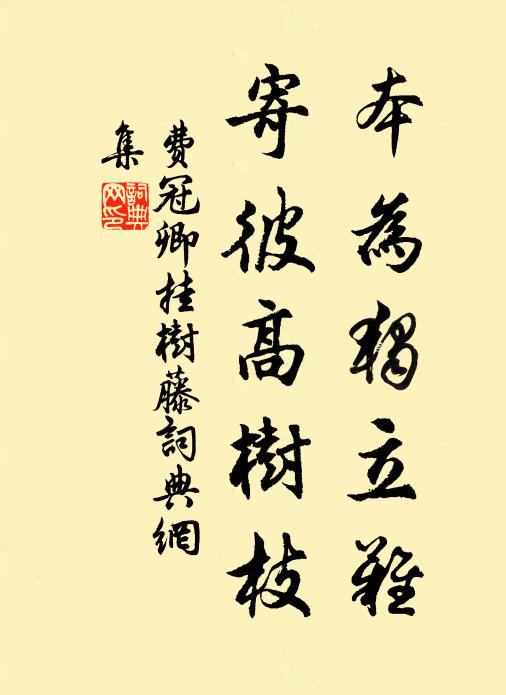 本為獨立難
寄彼高樹枝
費冠卿挂樹藤詞典網
集
詞典網印